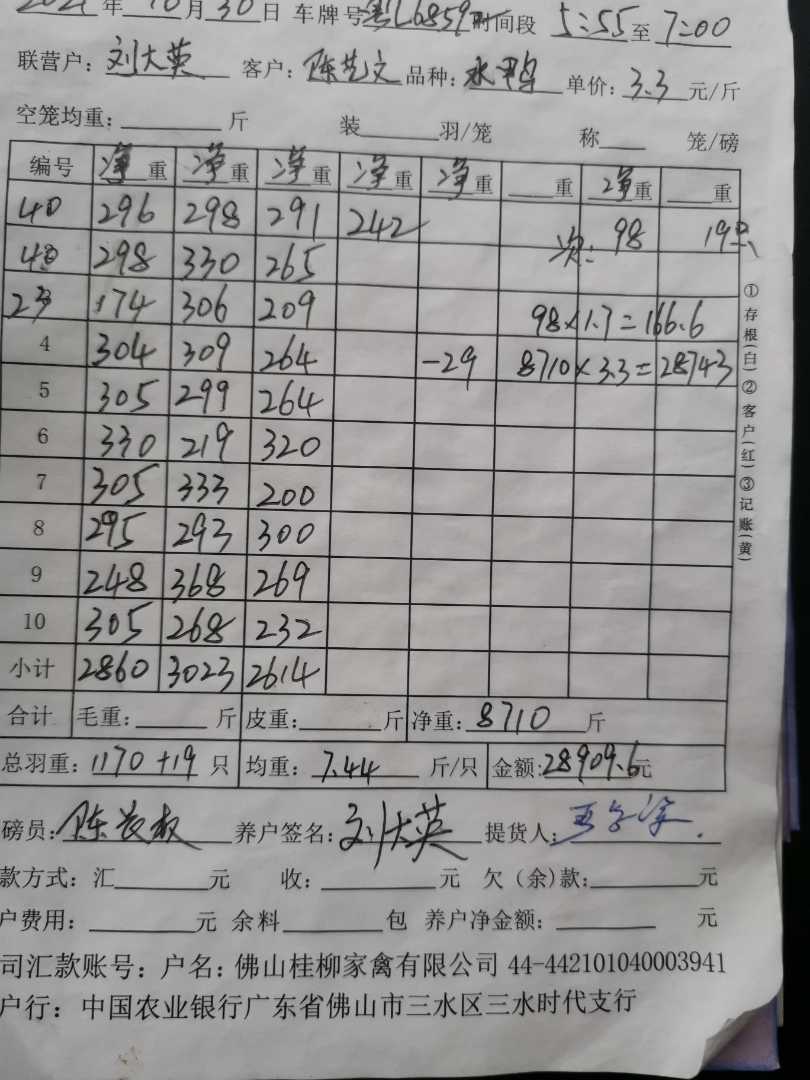 2021年10月30日 车牌号粤L6859 时间段 5:55至7:00
联营户：刘大英 客户：陈艺文 品种：水鸭 单价：3.3元/斤
空笼均重： 斤 装 羽/笼 称 笼/磅
编号 净重 净重 净重 净重 净重 重 净重 重
40 296 298 291 242 次： 98 19只
40 298 330 265
23 174 306 209 98×1.7=166.6
4 304 309 264 -29 8710×3.3=28743
5 305 299 264
6 330 219 320
7 305 333 200
8 295 293 300
9 248 368 269
10 305 268 232
小计 2860 3023 2614
合计 毛重： 斤 皮重： 斤 净重：8710 斤
总羽重：1170+19 只 均重：7.44 斤/只 金额：28909.6元
磅员：陈 养户签名：刘大英 提货人：
款方式：汇 元 收： 元 欠（余)款： 元
户费用： 元 余料 包 养户净金额： 元
司汇款账号：户名：佛山桂柳家禽有限公司 44-442101040003941
户行：中国农业银行广东省佛山市三水区三水时代支行
①存根(白)②客户(红)③记账(黄)